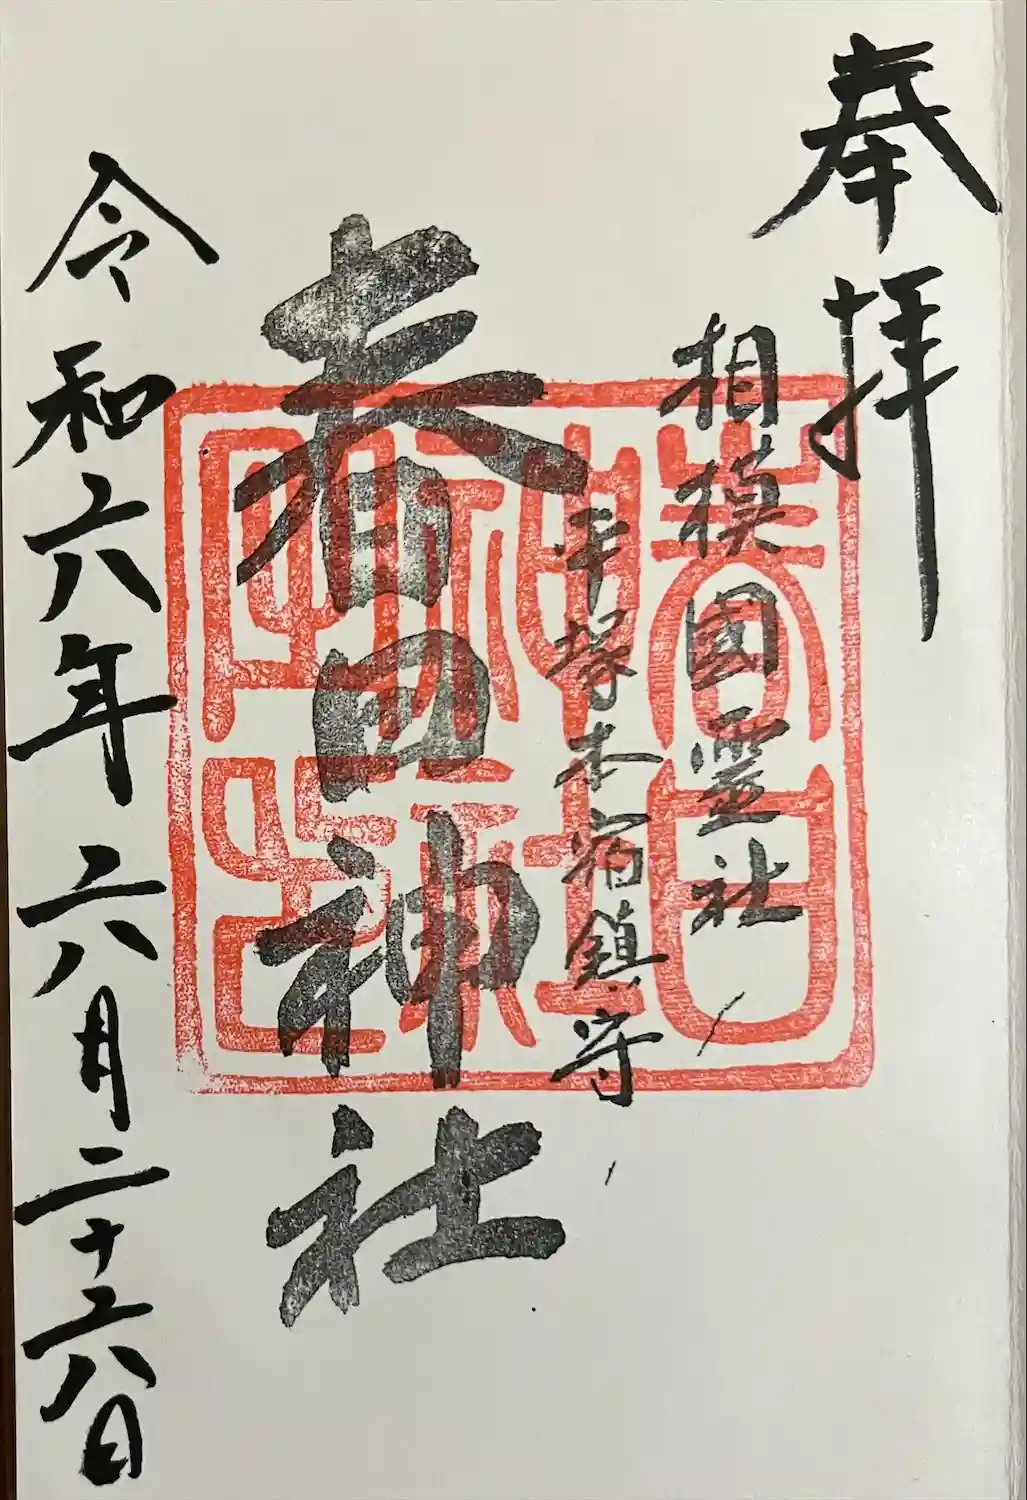 奉拝
相模國霊社
平塚本宿鎮守
春日神社
令和六年六月二十六日
春日
神社